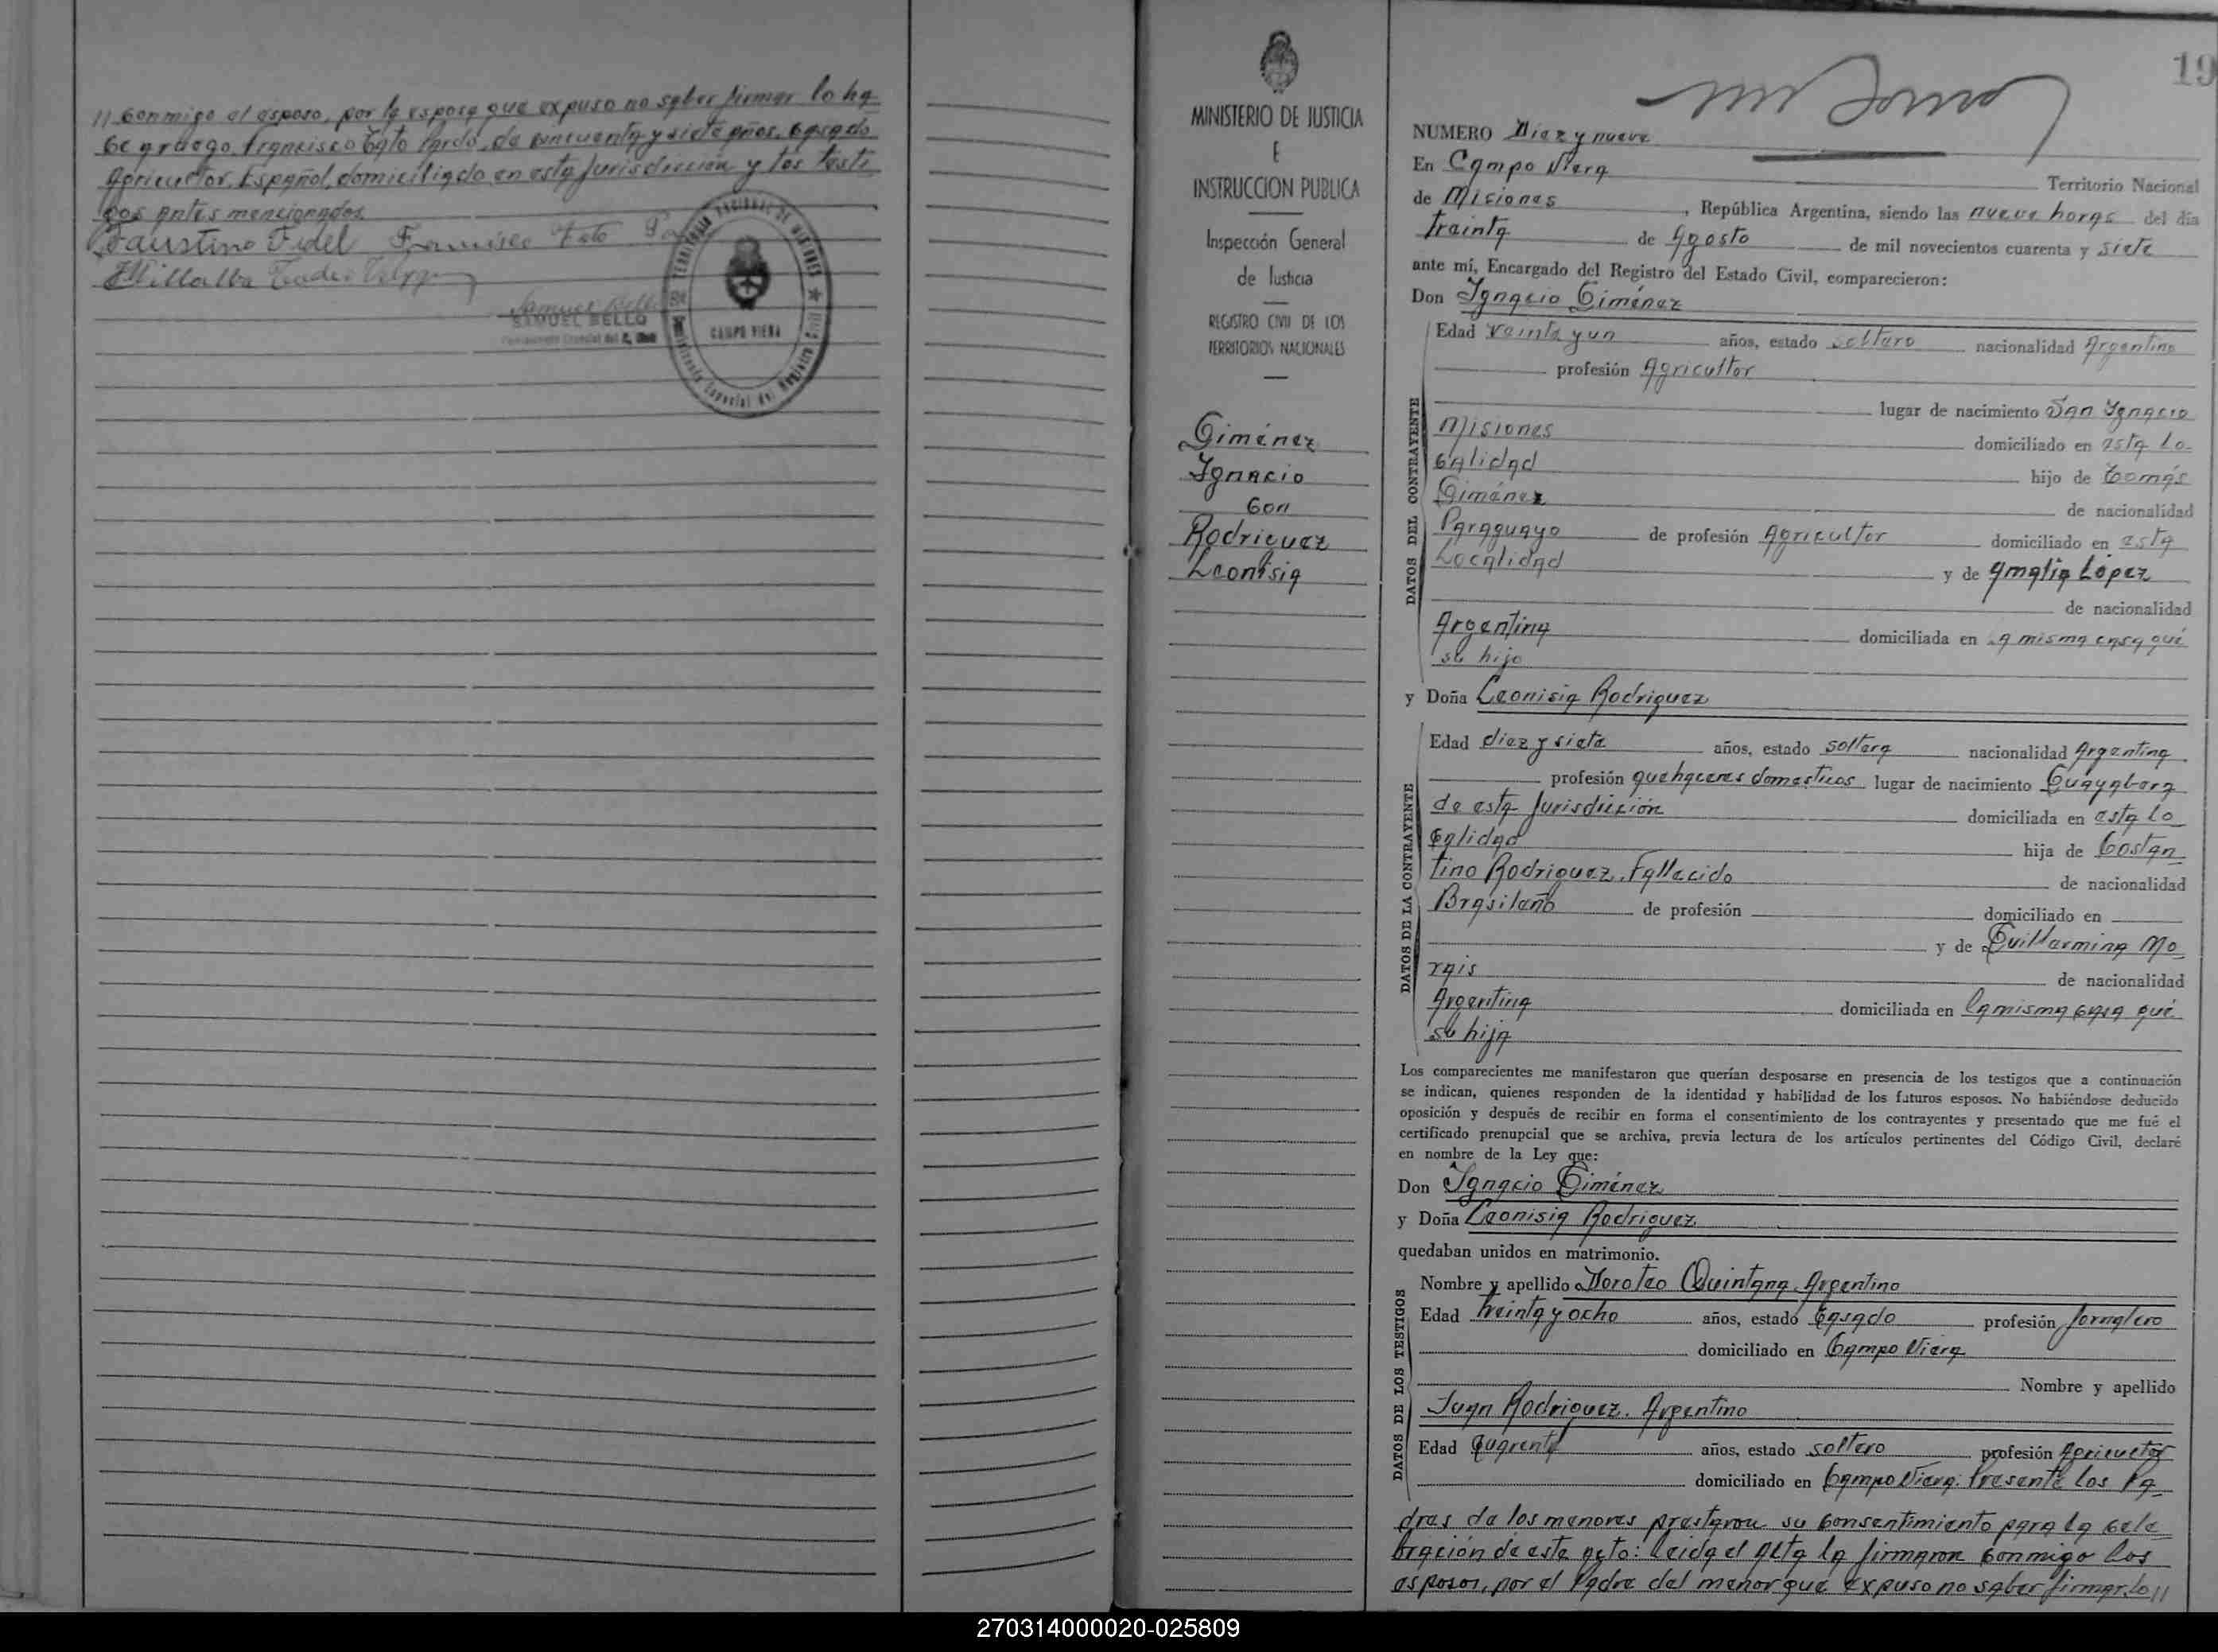 // Conmigo el esposo, por la esposa que expuso no saber firmar lo ha
ce a ruego Francisco Cato Pardo, de cincuenta y siete años, Casado
Agricultor, Español, domiciliado en esta Jurisdicción y los testi
gos antes mencionados.
Faustino Fidel Francisco Cato
Villalba
Samuel Bello
SAMUEL BELLO
TERRITORIO NACIONAL DE MISIONES
CAMPO VIERA
Registro Civil
MINISTERIO DE JUSTICIA
E
INSTRUCCION PUBLICA
Inspección General
de Justicia
REGISTRO CIVIL DE LOS
TERRITORIOS NACIONALES
Giménez
Ignacio
Con
Rodriguez
Leonisia
19
NUMERO Diez y nueve
En Campo Viera Territorio Nacional
de Misiones, República Argentina, siendo las nueve horas del día
treinta de Agosto de mil novecientos cuarenta y siete
ante mí, Encargado del Registro del Estado Civil, comparecieron:
Don Ignacio Giménez
DATOS DEL CONTRAYENTE
Edad veinte y un años, estado soltero nacionalidad Argentino
profesión Agricultor
lugar de nacimiento San Ignacio
Misiones domiciliado en esta Lo-
calidad hijo de Tomás
Giménez de nacionalidad
Paraguayo de profesión Agricultor domiciliado en esta
Localidad y de Amalia López
de nacionalidad
Argentina domiciliada en la misma casa qué
su hijo
y Doña Leonisia Rodriguez
DATOS DE LA CONTRAYENTE
Edad diez y siete años, estado soltera nacionalidad Argentina
profesión quehaceres domesticos lugar de nacimiento Guayabera
de esta Jurisdicción domiciliada en esta Lo
calidad hija de Costan
tino Rodriguez. Fallecido de nacionalidad
Brasileño de profesión domiciliado en
y de Guillermina Mo
rais de nacionalidad
Argentina domiciliada en la misma casa qué
su hija
Los comparecientes me manifestaron que querían desposarse en presencia de los testigos que a continuación
se indican, quienes responden de la identidad y habilidad de los futuros esposos. No habiéndose deducido
oposición y después de recibir en forma el consentimiento de los contrayentes y presentado que me fué el
certificado prenupcial que se archiva, previa lectura de los artículos pertinentes del Código Civil, declaré
en nombre de la Ley que:
Don Ignacio Giménez
y Doña Leonisia Rodriguez
quedaban unidos en matrimonio.
DATOS DE LOS TESTIGOS
Nombre y apellido Doroteo Quintana. Argentino
Edad treinta y ocho años, estado Casado profesión Jornalero
domiciliado en Campo Viera
Nombre y apellido
Juan Rodriguez. Argentino
Edad Cuarenta años, estado soltero profesión Agricultor
domiciliado en Campo Viera. Presente los Pa-
dres de los menores prestaron su consentimiento para la cele
bración de este acto: Leida el Acta la firmaron conmigo los
esposos, por el Padre del menor qué expuso no saber firmar, lo //
270314000020-025809